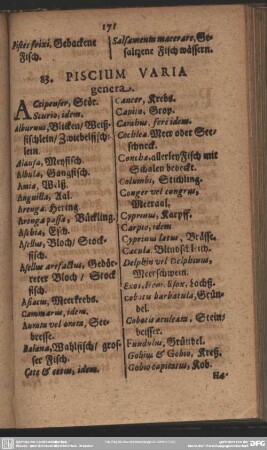 171
Pisces frixi, Gebackene
Fisch.
Salsamenta macerare, Ge-
saltzene Fisch wässern.
83. PISCIUM VARIA
genera.
ACcipenser, Stör.
Asturio, idem.
Alburnus, Blicken/ Weiß-
fischlein/ Zwiebelfisch-
lein.
Alausa, Meyfisch.
Albula, Gangfisch.
Amia, Welß.
Anguilla, Aal.
Arenga, Hering.
Arenga passa, Bückling.
Asbia, Esch.
Asellus, Bloch/ Stock-
fisch.
Asellus arefactus, Gedör-
reter Bloch/ Stock
fisch
Astacus, Meerkrebs.
Cammarus, idem.
Aurata vel orata, See-
bresse.
Balæna, Wahlfisch/ gros-
ser Fisch.
Cete & cetus, idem.
Cancer, Krebs.
Capito, Grop.
Carabus, fere idem.
Cochlea, Meer oder See-
schneck.
Concha, allerley Fisch mit
Schalen bedeckt.
Columbi, Stichling.
Conger vel congrus,
Meeraal.
Cyprinus, Karpff.
Carpio, idem
Cyprinus latus, Brässe.
Cæcula, Blindschlich.
Delphin vel Delphinus,
Meerschwein.
Exos, item, Esox, Lachß.
cobitis barbatula, Grün-
del.
Cobitis aculeata, Stein-
beisser.
Fundulus, Gründel.
Gobius & Gobio, Kreß.
Gobio capitatus, Kob.
H4